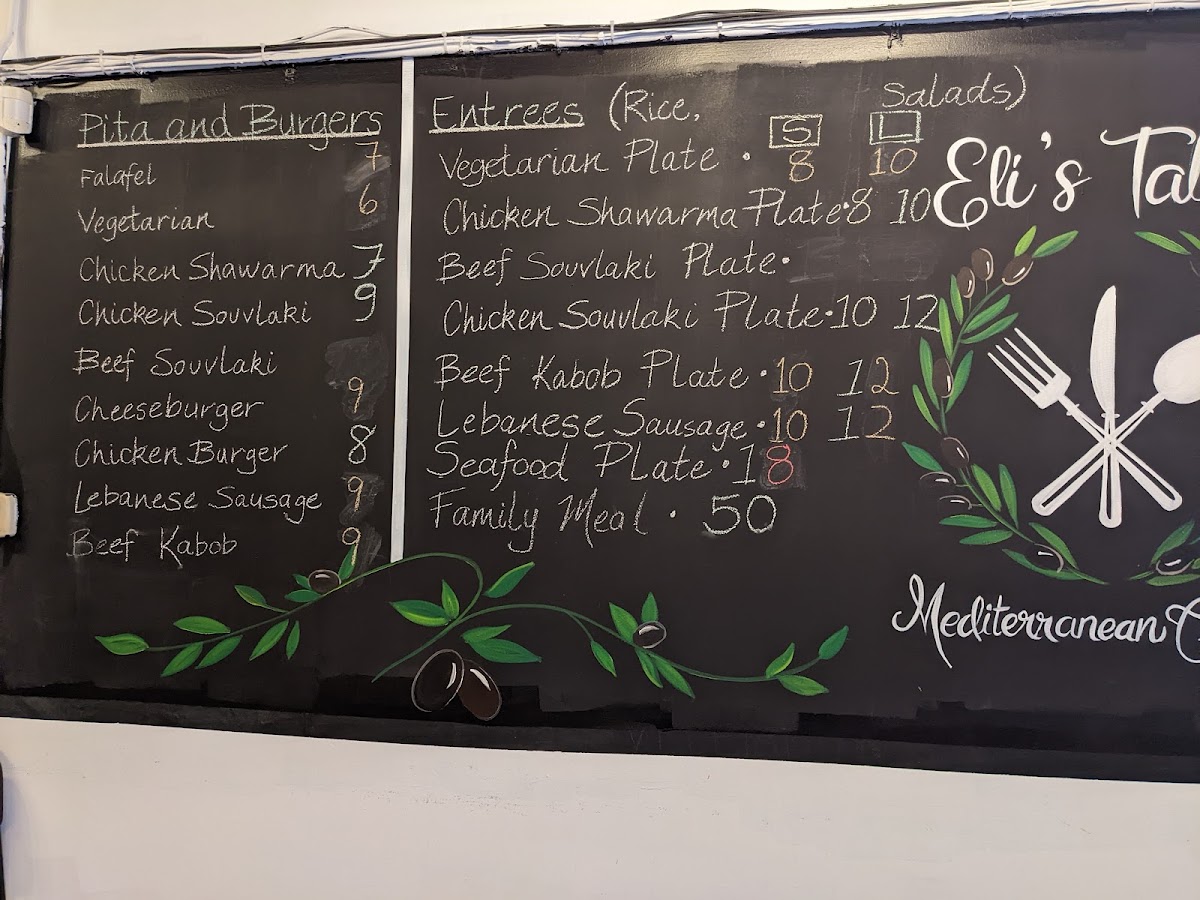 Pita and Burgers
Falafel 7
Vegetarian 6
Chicken Shawarma 7
Chicken Souvlaki 9
Beef Souvlaki
Cheeseburger 9
Chicken Burger 8
Lebanese Sausage 9
Beef Kabob 9
Entrees (Rice, Salads)
S L
Vegetarian Plate · 8 10
Chicken Shawarma Plate · 8 10
Beef Souvlaki Plate ·
Chicken Souvlaki Plate · 10 12
Beef Kabob Plate · 10 12
Lebanese Sausage · 10 12
Seafood Plate · 18
Family Meal · 50
Eli's
Mediterranean